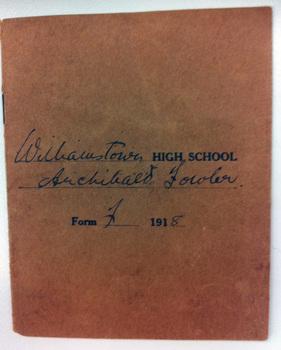 Williamstown HIGH SCHOOL
Archibald Fowler.
Form F 1918